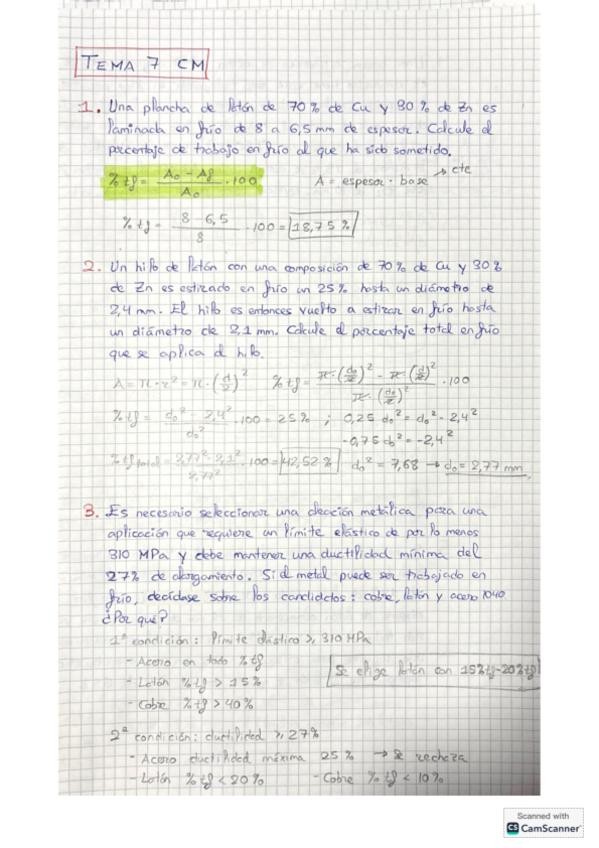 TEMA 7 CM
1. Una plancha de latón de 70% de Cu y 30% de Zn es
laminada en frío de 8 a 6,5 mm de espesor. Calcule el
porcentaje de trabajo en frío al que ha sido sometido.
% tf = (A₀ - Af) / A₀ · 100    A = espesor · base → cte
% tf = (8 - 6,5) / 8 · 100 = 18,75 %
2. Un hilo de latón con una composición de 70% de Cu y 30%
de Zn es estirado en frío un 25% hasta un diámetro de
2,4 mm. El hilo es entonces vuelto a estirar en frío hasta
un diámetro de 2,1 mm. Calcule el porcentaje total en frío
que se aplica al hilo.
A = π · r² = π · (d/2)²    % tf = (π · (d₀/2)² - π · (d/2)²) / (π · (d₀/2)²) · 100
% tf = (d₀² - 2,4²) / d₀² · 100 = 25% ; 0,25 d₀² = d₀² - 2,4²
-0,75 d₀² = -2,4²
% tf total = (2,77² - 2,1²) / 2,77² · 100 = 42,52 %    d₀² = 7,68 → d₀ = 2,77 mm
3. Es necesario seleccionar una aleación metálica para una
aplicación que requiere un límite elástico de por lo menos
310 MPa y debe mantener una ductilidad mínima del
27% de alargamiento. Si el metal puede ser trabajado en
frío, decídase sobre los candidatos: cobre, latón y acero 1040
¿Por qué?
1ª condición: límite elástico ≥ 310 MPa
- Acero en todo % tf
- Latón % tf > 15%    Se elige latón con 15%tf-20%tf
- Cobre % tf > 40%
2ª condición: ductilidad ≥ 27%
- Acero ductilidad máxima 25% → se rechaza
- Latón % tf < 20%    - Cobre % tf < 10%
Scanned with
CS CamScanner